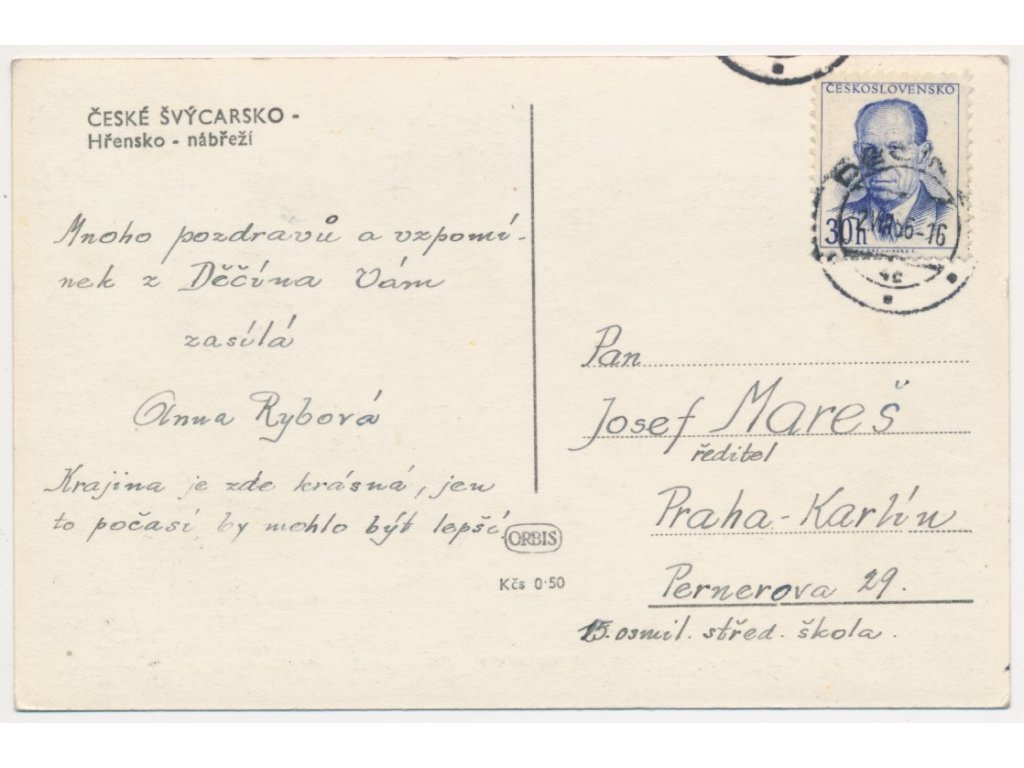 ČESKÉ ŠVÝCARSKO -
Hřensko - nábřeží
Mnoho pozdravů a vzpomí-
nek z Děčína Vám
zasílá
Anna Rybová
Krajina je zde krásná, jen
to počasí by mohlo být lepší.
ORBIS
Kčs 0·50
ČESKOSLOVENSKO
30h
56-16
4c
Pan
Josef Mareš
ředitel
Praha-Karlín
Pernerova 29.
15. osmil. střed. škola.